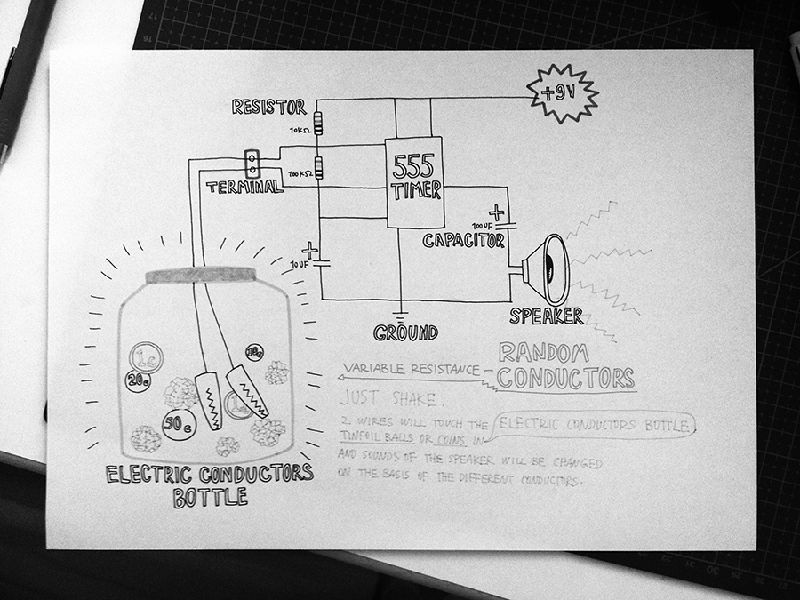 +9V
RESISTOR
10KΩ
555
TIMER
TERMINAL
100KΩ
+
100UF
CAPACITOR
+
10UF
SPEAKER
GROUND
RANDOM
VARIABLE RESISTANCE - CONDUCTORS
JUST SHAKE.
2 WIRES WILL TOUCH THE ELECTRIC CONDUCTORS BOTTLE
TINFOIL BALLS OR COINS IN
AND SOUNDS OF THE SPEAKER WILL BE CHANGED
ON THE BASIS OF THE DIFFERENT CONDUCTORS.
1c
20c
50c
ELECTRIC CONDUCTORS
BOTTLE